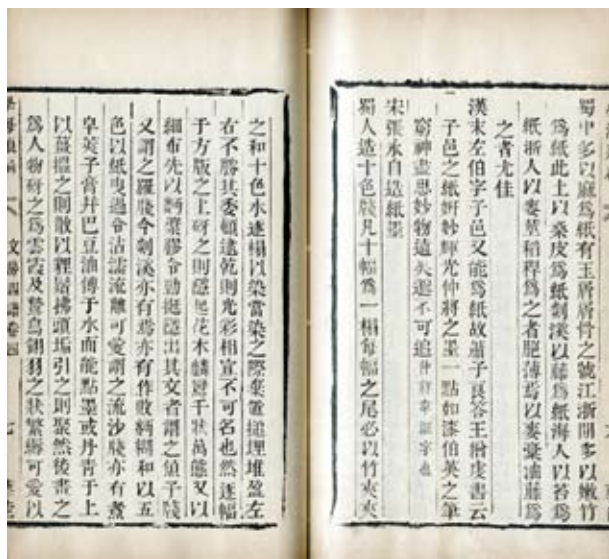 蜀中多以麻爲紙有玉屑屑骨之號江浙間多以嫩竹
爲紙北土以桑皮爲紙剡溪以藤爲紙海人以苔爲
紙浙人以麥莖稻稈爲之者脆薄焉以麥藁油藤爲
之者尤佳
漢末左伯字子邑又能爲紙故蕭子良答王僧虔書云
子邑之紙妍妙輝光仲將之墨一點如漆伯英之筆
窮神盡思妙物遠矣邈不可追仲將韋誕字也
宋張永自造紙墨
蜀人造十色牋凡十幅爲一榻每幅之尾必以竹夾夾
之和十色水逐榻以染當染之際棄置搥埋堆盈左
右不勝其委頓逮乾則光彩相宣不可名也然逐幅
于方版之上砑之則隱起花木麟鸞千狀萬態又以
細布先以麪漿膠令勁挺隱出其文者謂之魚子牋
又謂之羅牋今剡溪亦有焉亦有作敗麪糊和以五
色以紙曳過令沾濡流離可愛謂之流沙牋亦有煮
皁莢子膏并巴豆油傅于水面能點墨或丹青于上
以薑揾之則散以貍鬚拂頭垢引之則聚然後畫之
爲人物砑之爲雲霞及鷙鳥翎羽之狀繁縟可愛以
文房四譜卷四 七